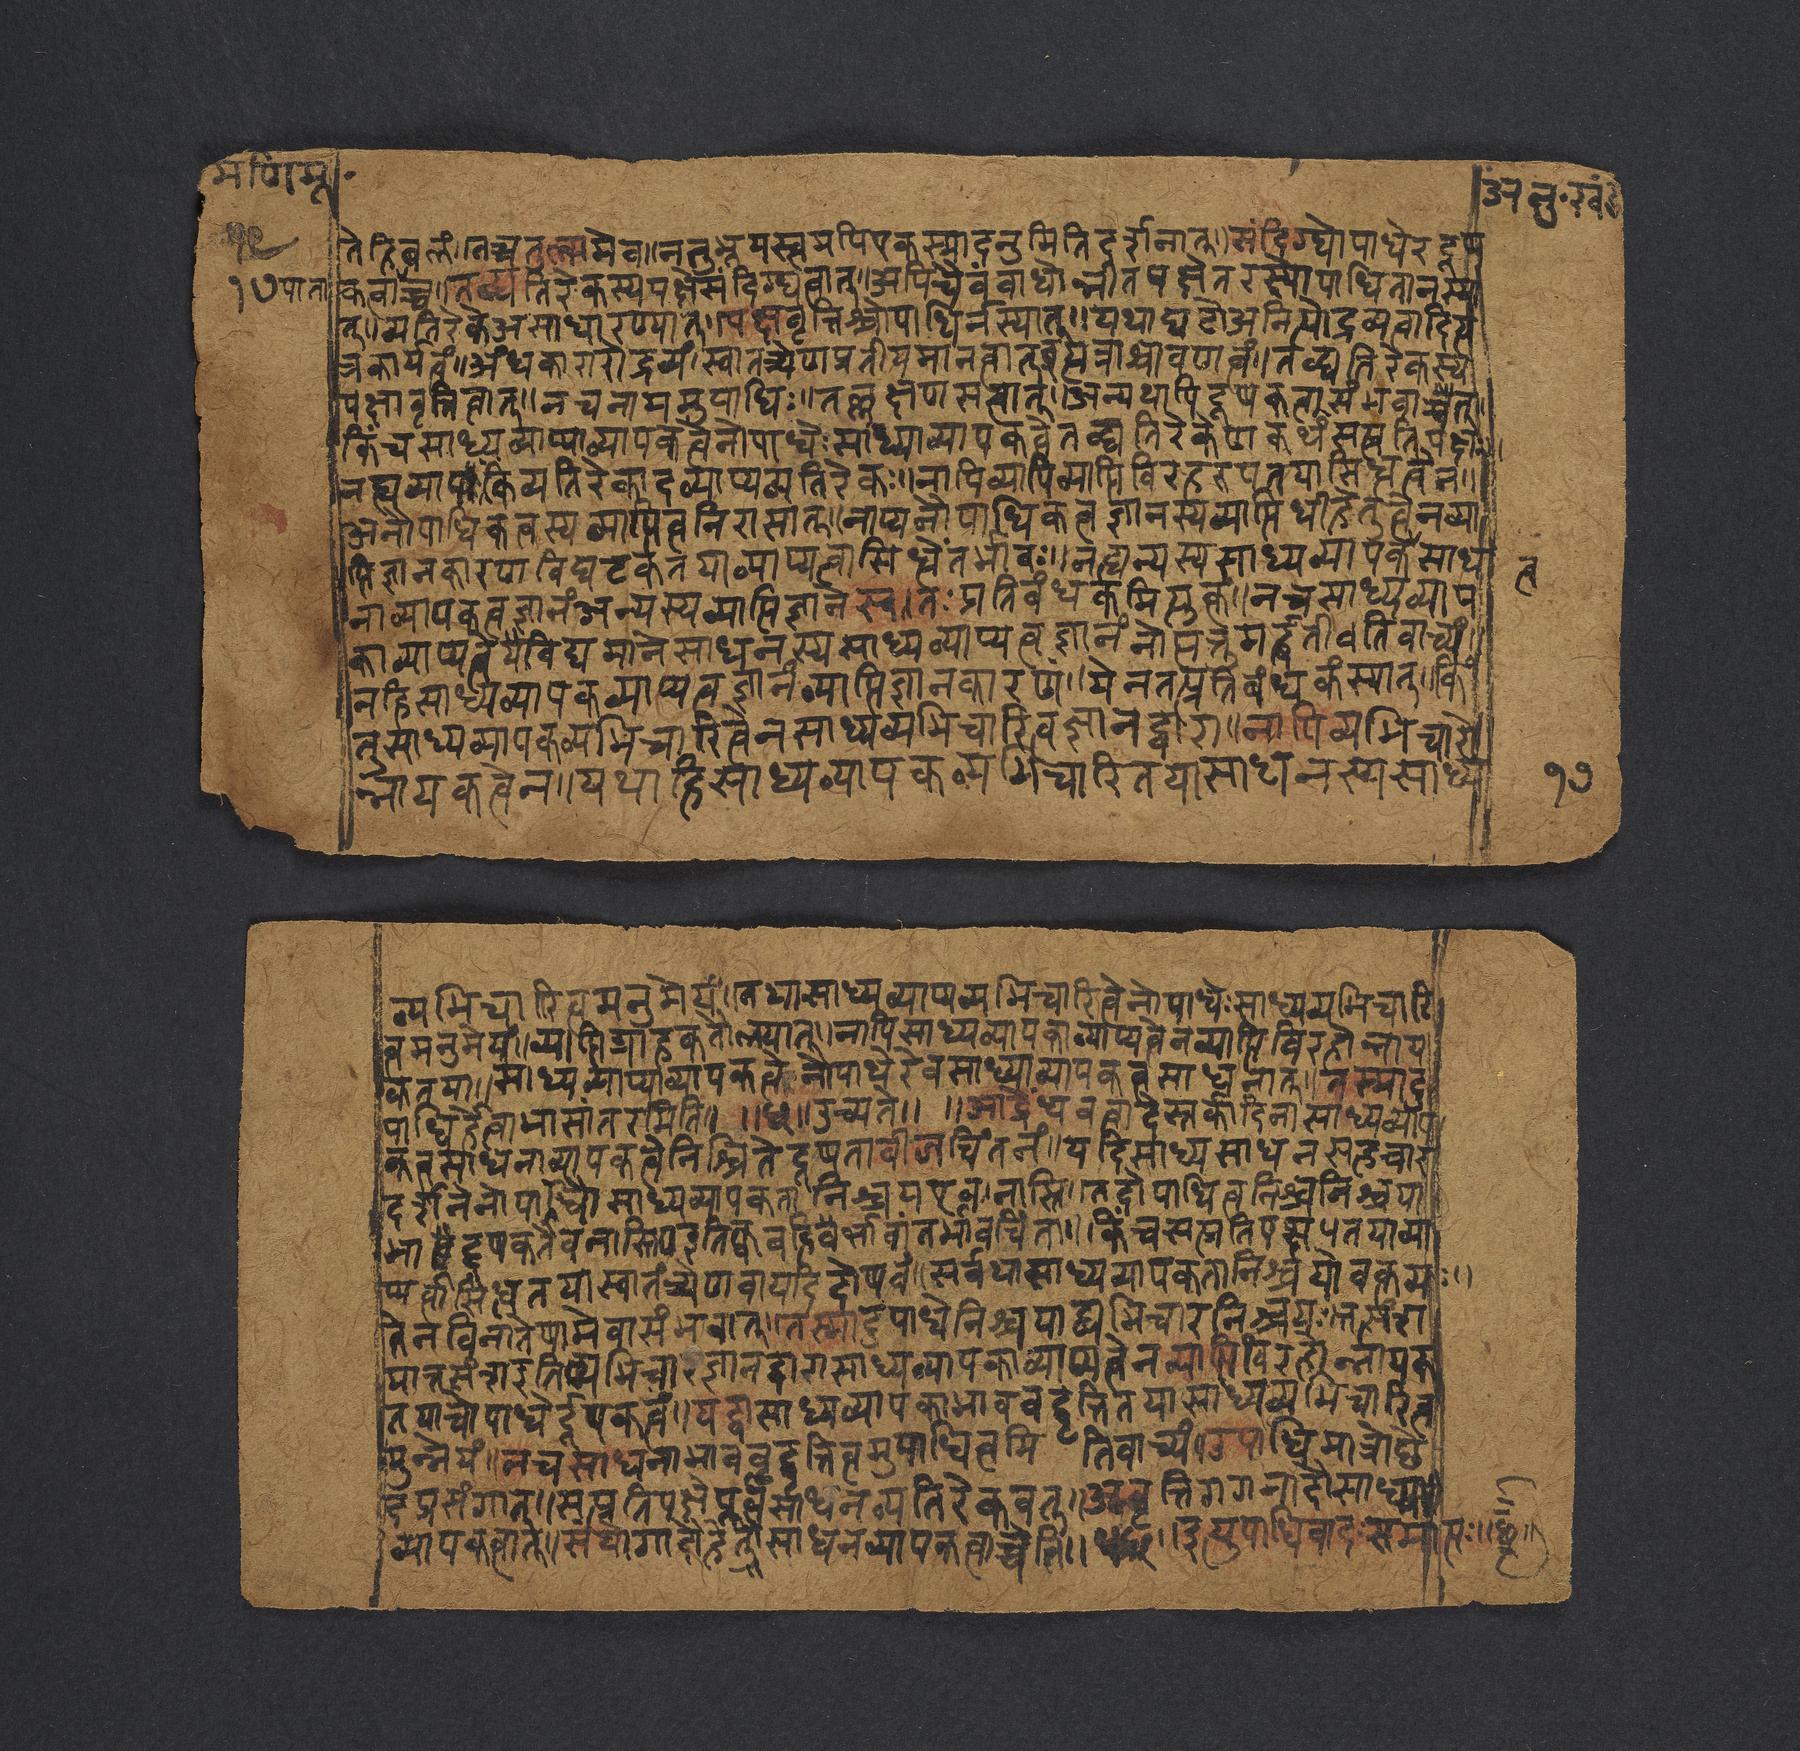 मणिमू॰
अनु॰खं॰
१७
ते हि बलं। तच्च तुल्यमेव॥ न तु भूयस्त्वमपि एकस्मादनुमितिदर्शनात्॥ संदिग्धोपाधेरदूष
कत्वाच्च॥ तद्व्यतिरेकस्य पक्षे संदिग्धत्वात्॥ अपि चैवं बाधोन्नीतपक्षेतरस्योपाधिता न स्या
त्॥ व्यतिरेके असाधारण्यात्॥ पक्षवृत्तिश्चोपाधिर्न स्यात्॥ यथा घटो अनित्यो द्रव्यत्वादित्य
त्र कार्यत्वं॥ अंधकारो द्रव्यं। स्वातंत्र्येण प्रतीयमानत्वात् इत्यत्राश्रावणत्वं॥ तद्व्यतिरेकस्य
पक्षावृत्तित्वात्॥ न च नायमुपाधिः॥ तल्लक्षणसत्वात्॥ अन्यथापि दूषकत्वासंभवाच्चेत्॥
किं च साध्यव्याप्याव्यापकत्वेनोपाधेः साध्याव्यापकत्वे तद्व्यतिरेकेण कथं सत्प्रतिपक्षः॥
न ह्यव्यापकव्यतिरेकादव्याप्यव्यतिरेकः॥ नापि व्याप्तिविरहरूपतयासिद्धत्वेन॥
अनौपाधिकत्वस्य व्याप्तित्वनिरासात्॥ नाप्यनौपाधिकत्वज्ञानस्य व्याप्तिधीहेतुत्वेन व्या
प्तिज्ञानकारणविघटकतया व्याप्यत्वासिद्धेंतर्भावः॥ न ह्यन्यस्य साध्यव्यापकसाध
त्व
नाव्यापकत्वज्ञानं अन्यस्य व्याप्तिज्ञाने स्वतः प्रतिबंधकमित्युक्तं॥ न च साध्यव्याप
काव्याप्यत्वे विद्यमाने साधनस्य साध्यव्याप्यत्वज्ञानं नोत्पत्तुमर्हतीति वाच्यं॥
न हि साध्यव्यापकव्याप्यत्वज्ञानं व्याप्तिज्ञानकारणं॥ येन तत्प्रतिबंधकं स्यात्॥ किं
तु साध्यव्यापकव्यभिचारित्वेन साध्यव्यभिचारित्वज्ञानद्वारा॥ नापि व्यभिचारो
न्नायकत्वेन॥ यथा हि साध्यव्यापकव्यभिचारितया साधनस्य साध्य
१७
व्यभिचारित्वमनुमेयं। तथा साध्यव्याप्यव्यभिचारित्वेनोपाधेः साध्यव्यभिचारि
त्वमनुमेयं॥ व्याप्तिग्राहकतौल्यात्। नापि साध्यव्यापकाव्याप्यत्वेन व्याप्तिविरहोन्नाय
कतया॥ साध्यव्याप्याव्यापकत्वेनोपाधेरेव साध्याव्यापकत्वसाधनात्॥ तस्मादु
पाधिर्हेत्वाभासांतरमिति॥ ॥छ॥ उच्यते॥ ॥आर्द्रेंधनवत्वादेस्तर्कादिना साध्यव्याप
कत्वसाधनाव्यापकत्वे निश्चिते दूषकताबीजचिंतनं॥ यदि साध्यसाधनसहचार
दर्शनेनोपाधौ साध्यव्यापकतानिश्चय एव नास्ति। तदोपाधित्वनिश्चय
दूषकतैव नास्ति बहिर्भावांतर्भावचिंता॥ किं च सत्प्रतिपक्षतया व्या
प्यत्वासिद्धतया स्वातंत्र्येण वा यदि दोषत्वं॥ सर्वथा साध्यव्यापकतानिश्चयो वक्तव्यः॥
तेन विना तेषामेवासंभवात्॥ तस्मादुपाधेर्निश्चयाद्व्यभिचारनिश्चयः। संश
यात्तत्संशय इति व्यभिचारज्ञानद्वारा साध्यव्यापकाव्याप्यत्वेन व्याप्तिविरहोन्नायक
तया चोपाधेर्दूषकत्वं॥ यद्वा साध्यव्यापकाभाववद्वृत्तितया साध्यव्यभिचारित्व
मुन्नेयं॥ न च साधनाभाववद्वृत्तित्वमुपाधित्वमिति वाच्यं॥ उपाधिमात्रोच्छे
दप्रसंगात्॥ सत्प्रतिपक्षे पूर्वसाधनव्यतिरेकवत्॥ अवृत्तिगगनादौ साध्या
व्यापकत्वात्॥ संयोगादौ हेतौ साधनव्यापकत्वाच्चेति॥ ॥छ॥ ॥ इत्युपाधिवादः समाप्तः॥छ॥